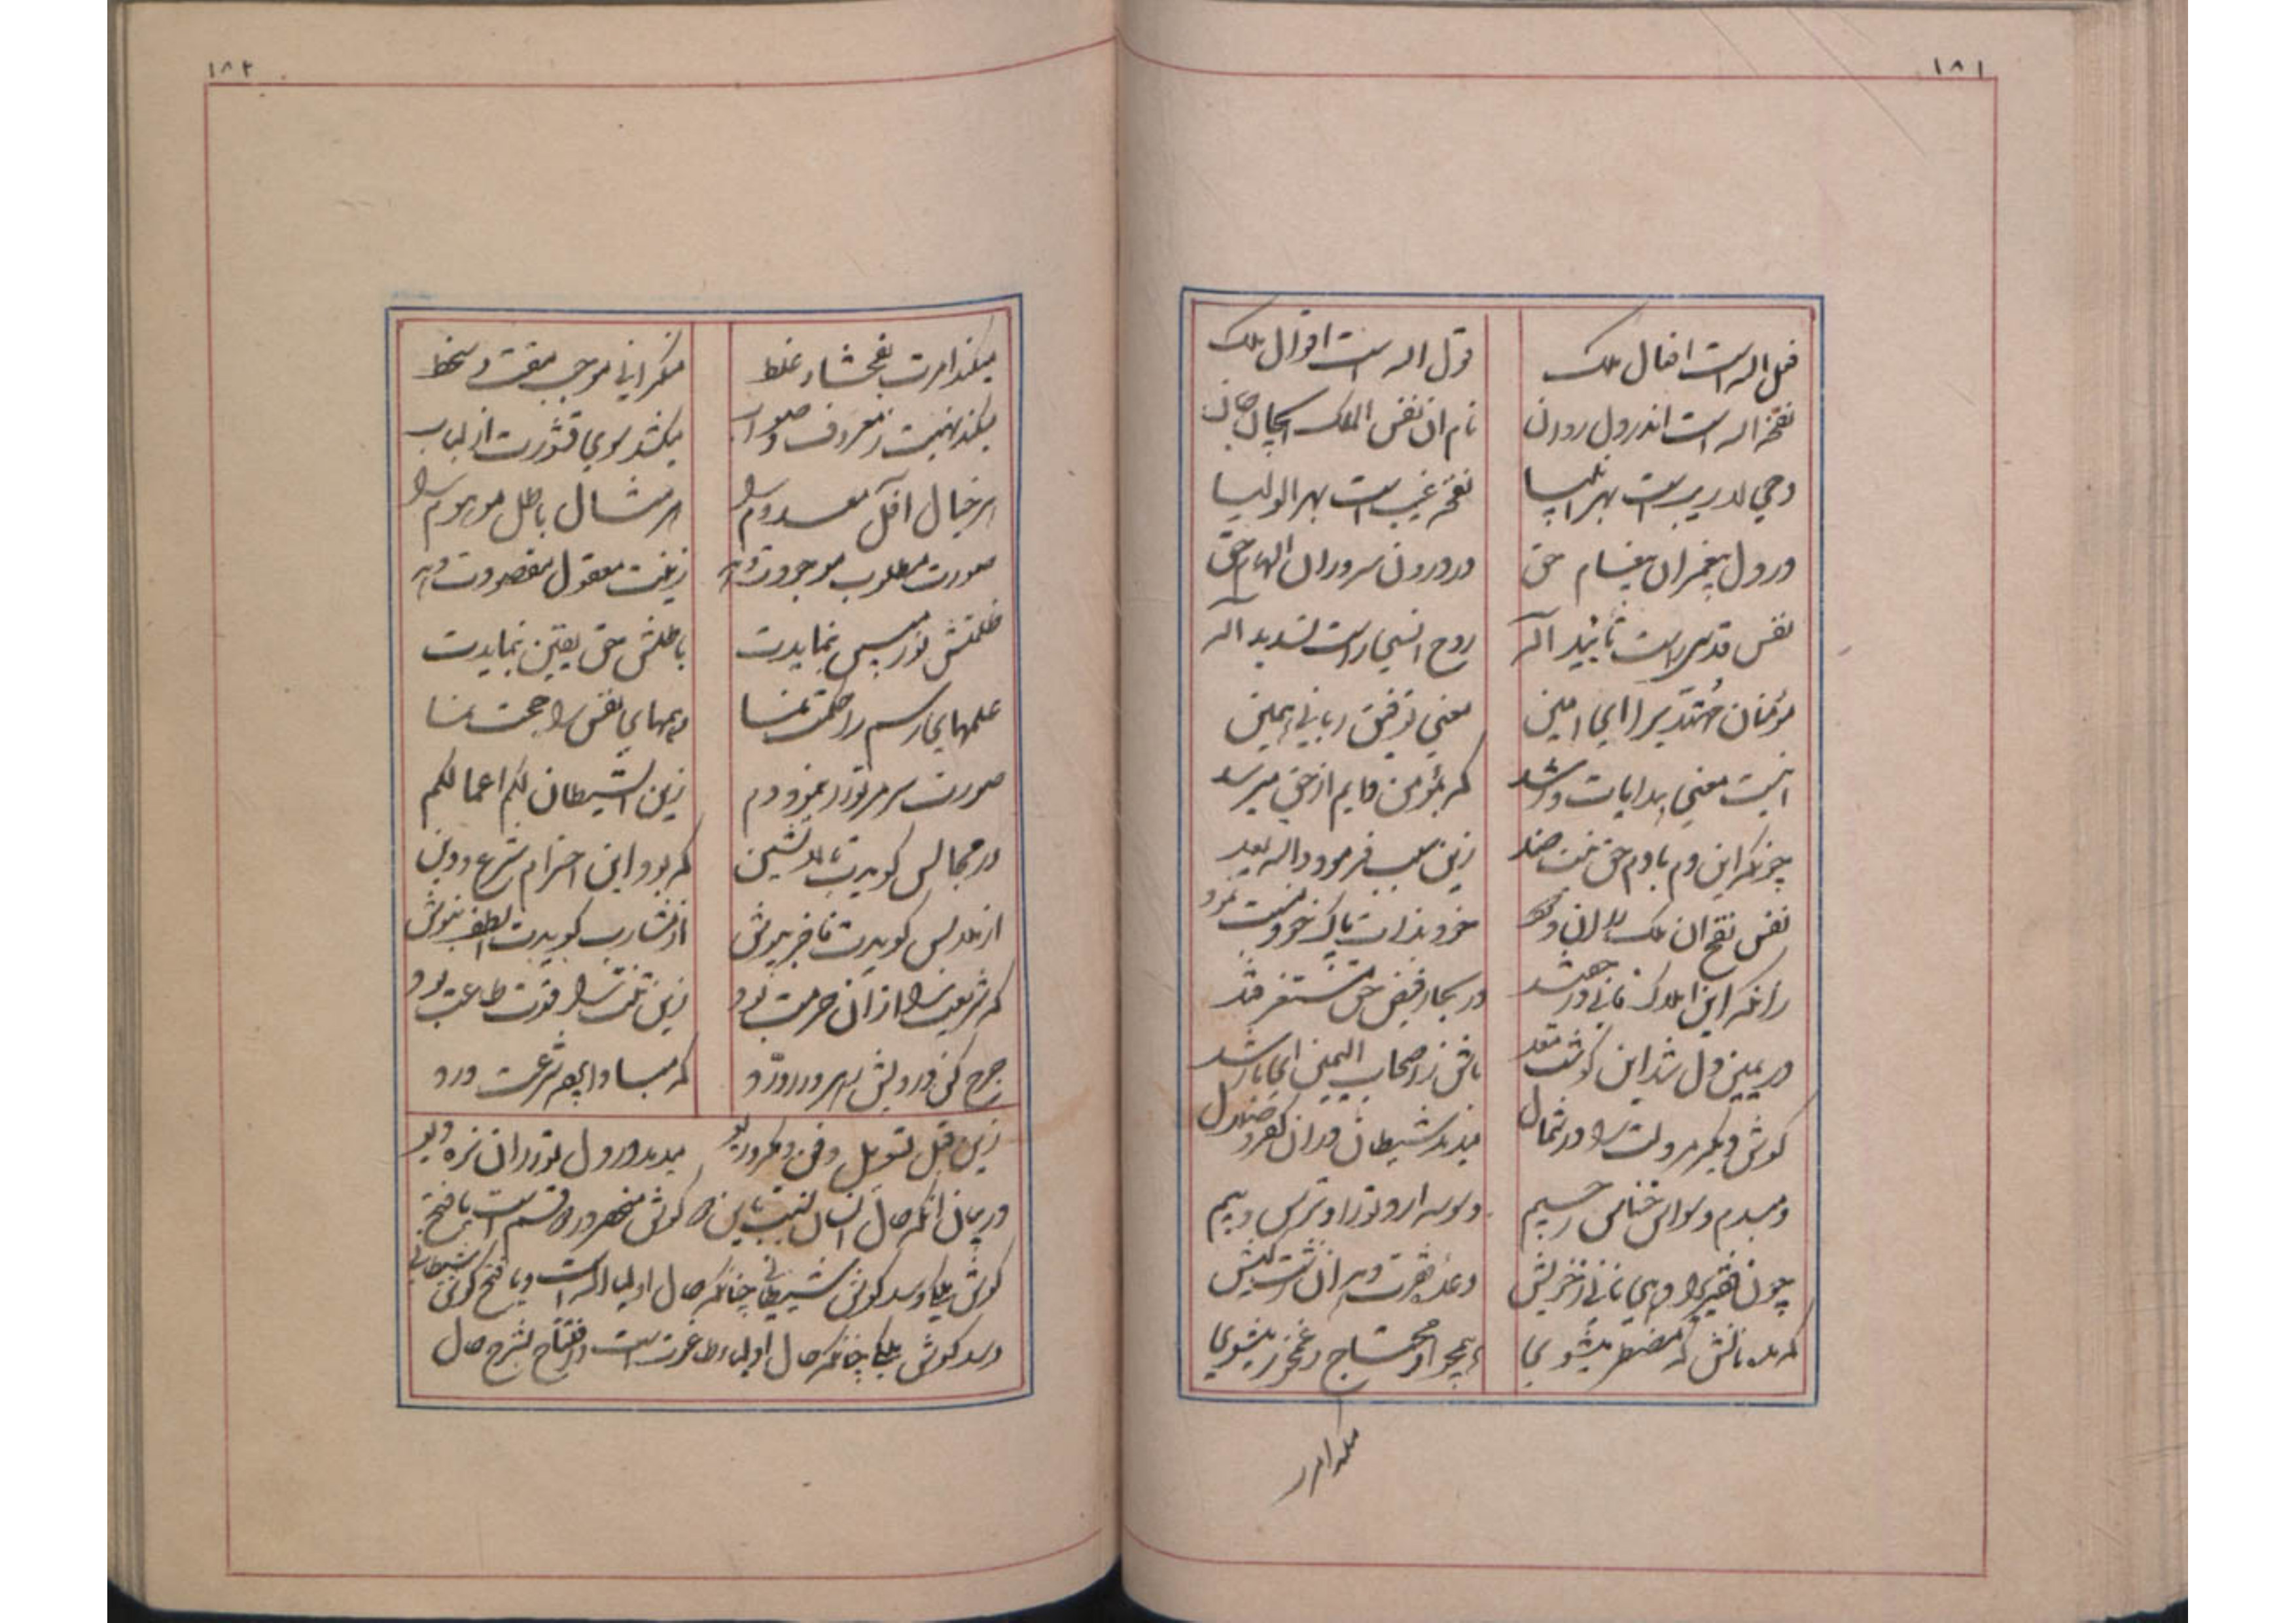 ۱۸۱
فعل اله است افعال ملک
قول اله است اقوال ملک
نفخه اله است اندر دل روان
نام ان نفس الملک
وحی لاریب است بهر انبیا
نفخه غیب است بهر اولیا
در دل پیغمبران پیغام حق
در درون سروران الهام حق
نفس قدسی راست تأیید اله
روح انسی راست تسدید اله
مؤمنان مهتدی را ای امین
معنی توفیق ربانی همین
اینست معنی هدایات و رشد
که بمؤمن دایم از حق میرسد
چونکه این دم با دم حق نیست ضد
زین سبب فرمود
نفس نفخ ان ملک
خود بذات پاک خود نسبت نمود
زانکه این املاک فانی در
در بحار فیض حق مستغرقند
در یمین دل شد این گوشت معد
باش ز اصحاب الیمین ای با رشد
گوش دیگر مر دلت را در شمال
میدمد شیطان در ان کفر و ضلال
دمبدم وسواس خناس رجیم
وسوسه ارد تو را و ترس و بیم
چون فقیری را دهی نانی ز خویش
وعده فقرت دهد ان زشت کیش
که مده نانش که مضطر میشوی
همچو او محتاج و غمخور میشوی
میکند امر
۱۸۲
میکند امرت بفحشا و غلط
منکراتی موجب مقت و سخط
میکند نهیت ز معروف و صواب
میکشد سوی قشورت از لباب
هر خیال آفل معدوم را
هر مثال باطل موهوم را
صورت مطلوب موجودت دهد
زینت معقول مقصودت دهد
ظلمتش نور مبین بنمایدت
باطلش حق یقین بنمایدت
علمهای رسم را حکمت نما
وهمهای نفس را حجت نما
صورت سر مر تو را بنمود دم
زین الشیطان لکم اعمالکم
در مجالس گویدت بالانشین
که بود این احترام شرع و دین
از ملابس گویدت فاخر بپوش
از مشارب گویدت الطف بنوش
که شریعت را از ان حرمت بود
زین تنت را قوت طاعت بود
جرح کن درویش را هر دو
که مبادا بهر شرعت درد
زین قبل تسویل و فن و مکر و ریو
میدمد در دل تو را ان نره دیو
در بیان انکه حال انسان نسبت باین دو گوش منحصر در دو قسم است یا فتح
گوش ملکی و سد گوش شیطانی چنانکه حال اولیا اله است و یا فتح گوش شیطانی
و سد گوش ملکی چنانکه حال اولیاء طاغوت است و افتتاح بشرح حال